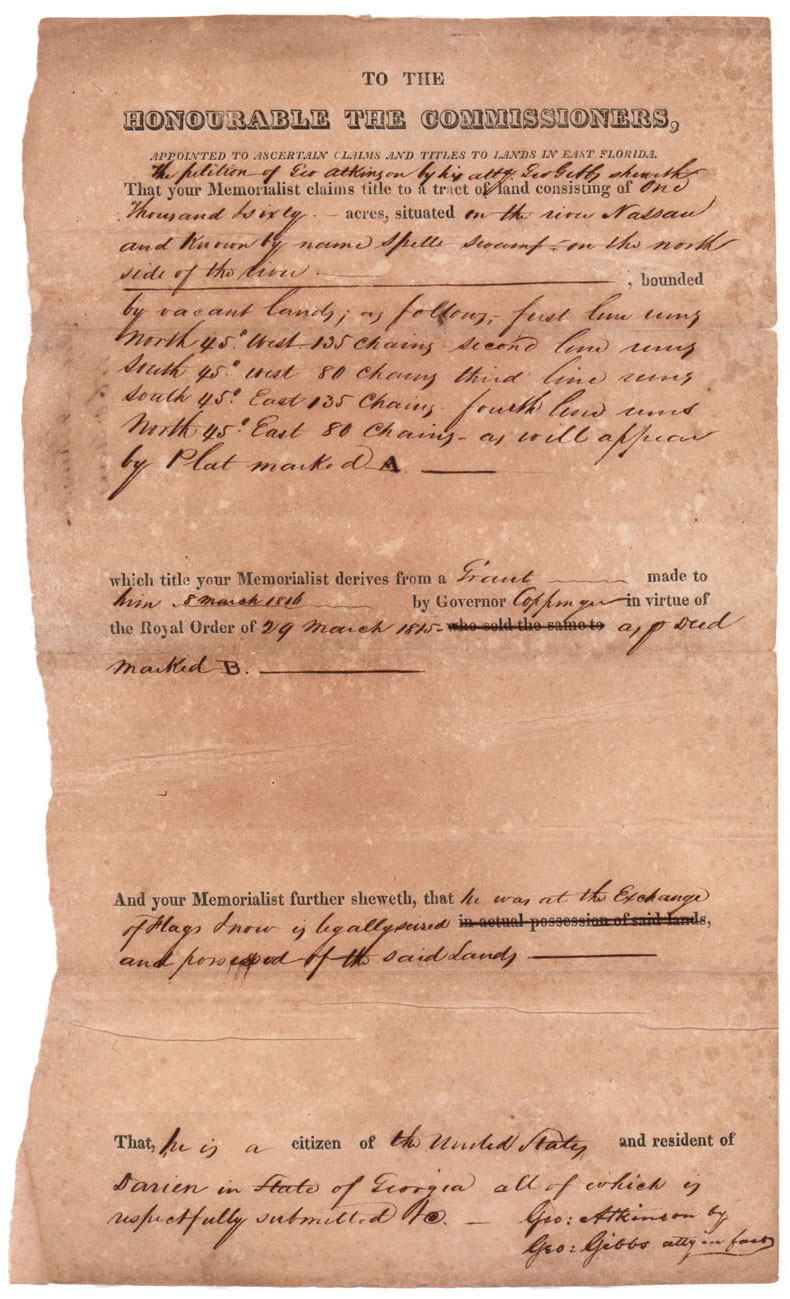 TO THE
HONOURABLE THE COMMISSIONERS,
APPOINTED TO ASCERTAIN CLAIMS AND TITLES TO LANDS IN EAST FLORIDA.
The petition of Geo Atkinson by his atty. Geo Gibbs sheweth
That your Memorialist claims title to a tract of land consisting of One
Thousand & sixty — acres, situated on the river Nassau
and Known by name Spells swamp – on the north
side of the river ———, bounded
by vacant lands; as follows, – first line runs
North 45.° West 135 Chains second line runs
South 45.° west 80 Chains third line runs
South 45.° East 135 Chains. fourth line runs
North 45° East 80 Chains – as will appear
by Plat marked A. ———
which title your Memorialist derives from a Grant ——— made to
him 8 March 1816 ——— by Governor Coppinger in virtue of
the Royal Order of 29 March 1815 – who sold the same to as p Deed
marked B. ———
And your Memorialist further sheweth, that he was at the Exchange
of Flags & now is legally seized in actual possession of said lands,
and possessed of the said Lands ———
That, he is a citizen of the United States and resident of
Darien in State of Georgia all of which is
respectfully submitted &c. — Geo: Atkinson by
Geo: Gibbs atty in fact